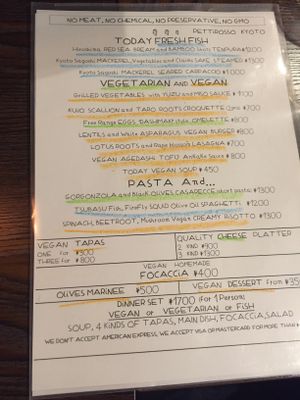 NO MEAT, NO CHEMICAL, NO PRESERVATIVE, NO GMO
PETTIROSSO KYOTO
TODAY FRESH FISH
Hiroshima RED SEA BREAM and BAMBOO Shoots TEMPURA ¥1200
Kyoto Sagoshi MACKEREL, Vegetables and Clams SAKE STEAMED ¥1300
Kyoto Sagoshi MACKEREL SEARED CARPACCIO ¥1000
VEGETARIAN AND VEGAN
GRILLED VEGETABLES with YUZU and MISO SAUCE ¥1200
KUJO SCALLION and TARO ROOTS CROQUETTE ¥700
Free Range EGGS, BASHIMARI OMELETTE ¥800
LENTILS and White ASPARAGUS VEGAN BURGER ¥800
LOTUS ROOTS and Rape LASAGNA ¥700
VEGAN AGEDASHI TOFU SAUCE ¥800
TODAY VEGAN SOUP ¥450
PASTA AND...
GORGONZOLA and Black OLIVES CASARECCE (short pasta) ¥1300
TSUBASU Fish, FireFly SQUID Olive OIL SPAGHETTI ¥1200
SPINACH, BEETROOT, Mushroom Vegan CREAMY RISOTTO ¥1300
VEGAN TAPAS
ONE for ¥300
THREE for ¥800
QUALITY CHEESE PLATTER
2 KIND ¥900
3 KINDS ¥1300
VEGAN HOMEMADE
FOCACCIA ¥400
OLIVES MARINEE ¥500
VEGAN DESSERT From ¥35
DINNER SET ¥1700 (For 1 Person)
VEGAN or VEGETARIAN or FISH
SOUP, 4 KINDS OF TAPAS, MAIN DISH, FOCACCIA, SALAD
WE DON'T ACCEPT AMERICAN EXPRESS, WE ACCEPT VISA OR MASTERCARD FOR MORE THAN